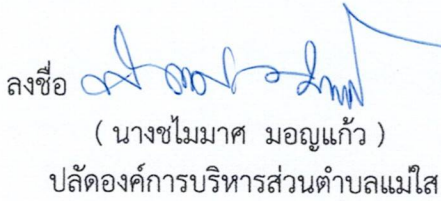 ลงชื่อ
( นางชไมมาศ มอญแก้ว )
ปลัดองค์การบริหารส่วนตำบลแม่ใส